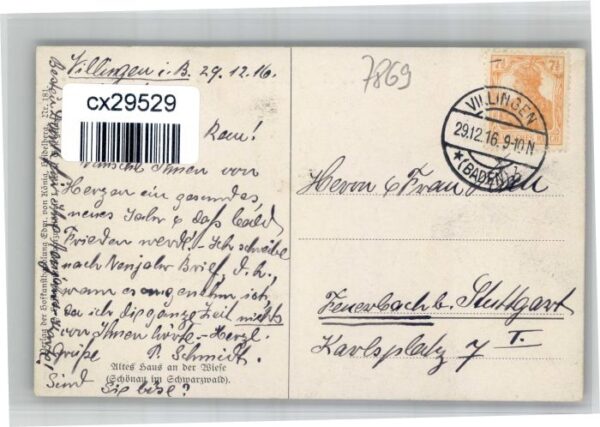 Villingen i. B. 29.12.16.
cx29529
Rau!
Wünsche Ihnen von
Herzen ein gesundes
neues Jahr & daß bald
Frieden werde! – Ich schreibe
nach Neujahr Brief, d. h.
wann es angenehm ist,
da ich die ganze Zeit nichts
von Ihnen hörte. – Herzl.
Grüße P. Schmidt.
Sind Sie böse?
Altes Haus an der Wiese
(Schönau im Schwarzwald).
7869
7½
VILLINGEN
29.12.16.9-10.N
*(BADEN)
Herrn & Frau Rau
Feuerbach b. Stuttgart
Karlsplatz 7 I.